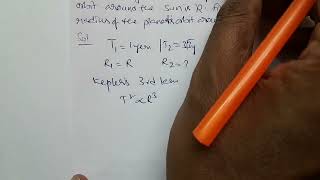 orbit around the sun is 'R'. Fi
radius of the planets orbit around
Sol
T₁ = 1 year | T₂ =
R₁ = R R₂ = ?
Kepler's 3rd law
T² ∝ R³